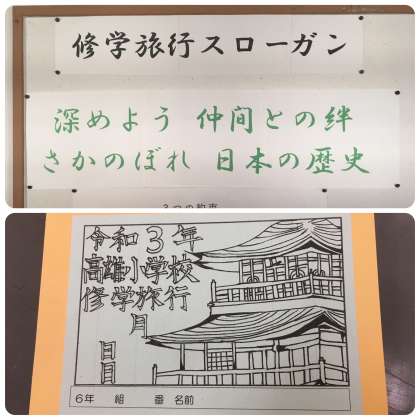 修学旅行スローガン
深めよう 仲間との絆
さかのぼれ 日本の歴史
3つの約束
令和3年
高雄小学校
修学旅行
月
日
日
6年 組 番 名前